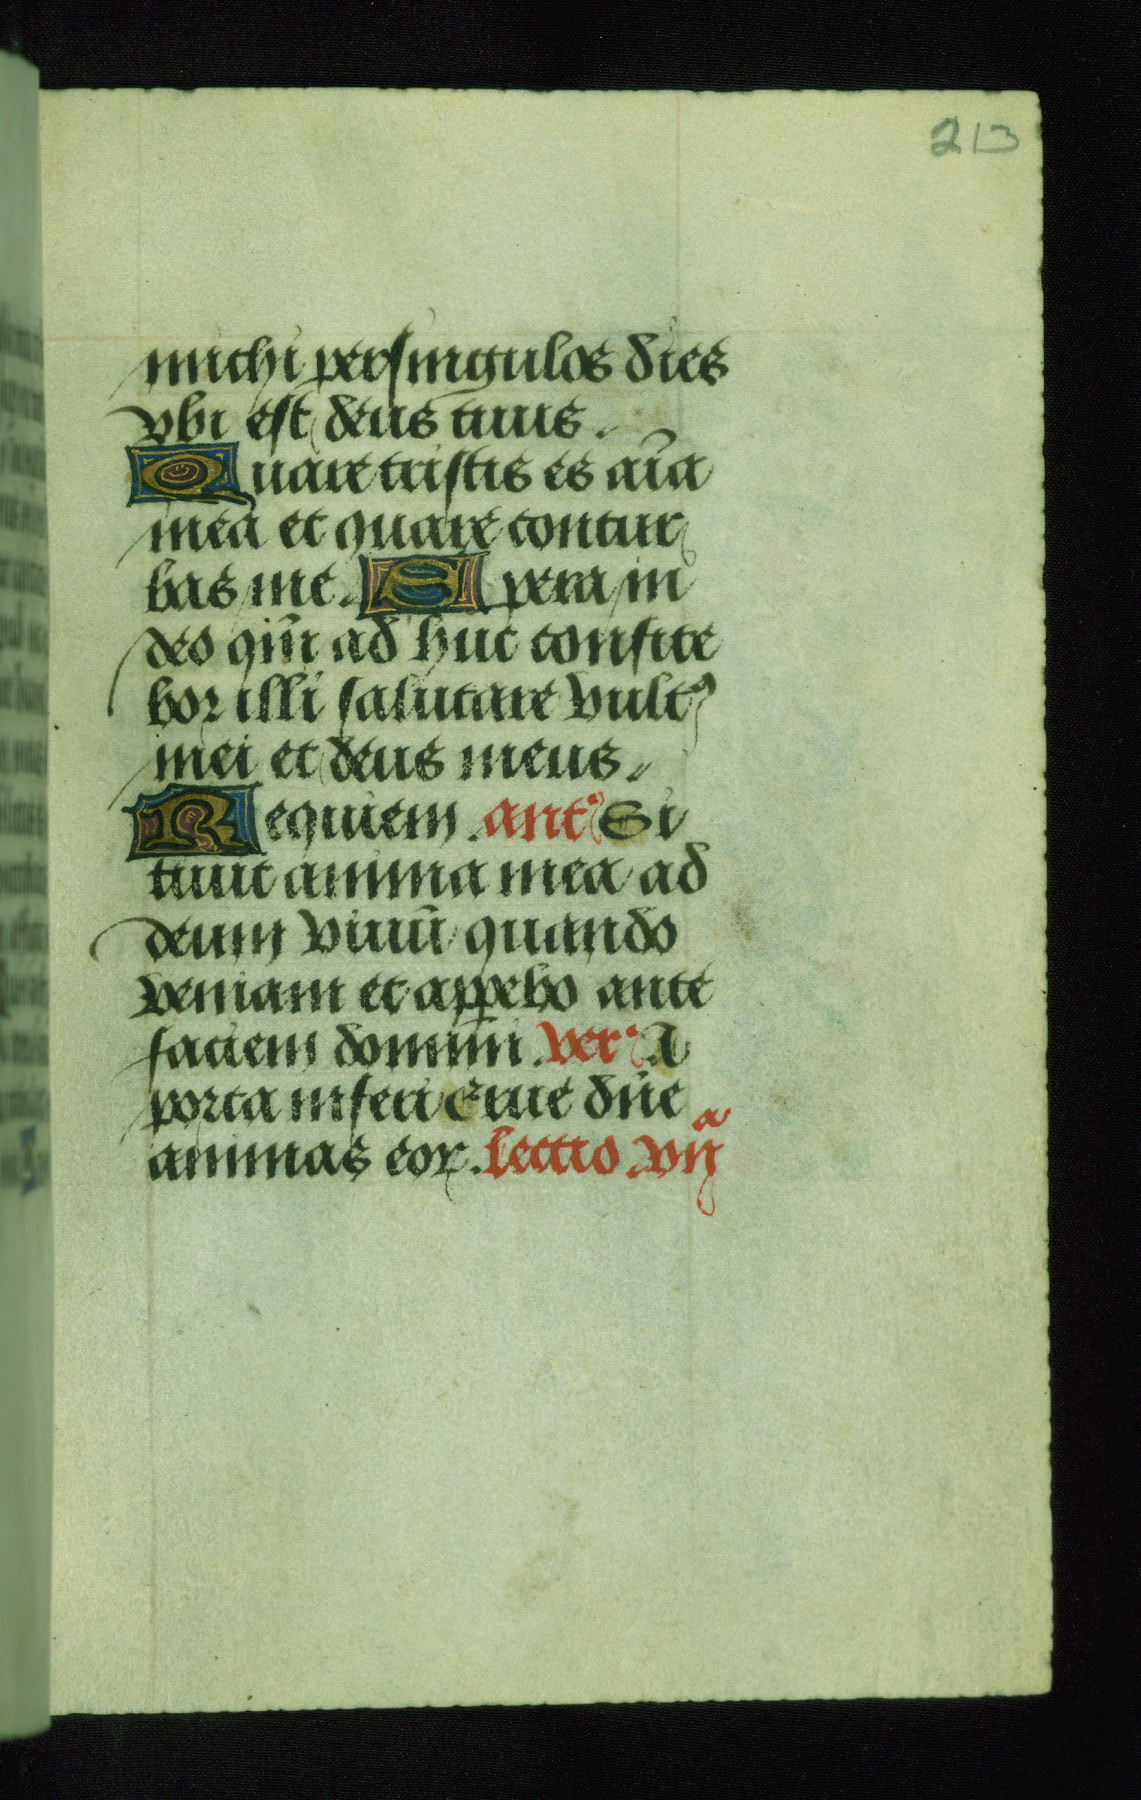 213
michi per singulos dies
vbi est deus tuus.
Quare tristis es aīa
mea et quare contur
bas me. Spera in
deo qm̄ ad huc confite
bor illi salutare vultꝰ
mei et deus meus.
Requiem. ant' Si
tiuit anima mea ad
deum viuū quando
veniam et appebo ante
faciem domini. ver' A
porta inferi Erue dn̄e
animas eoꝝ. Lectio vijᵃ